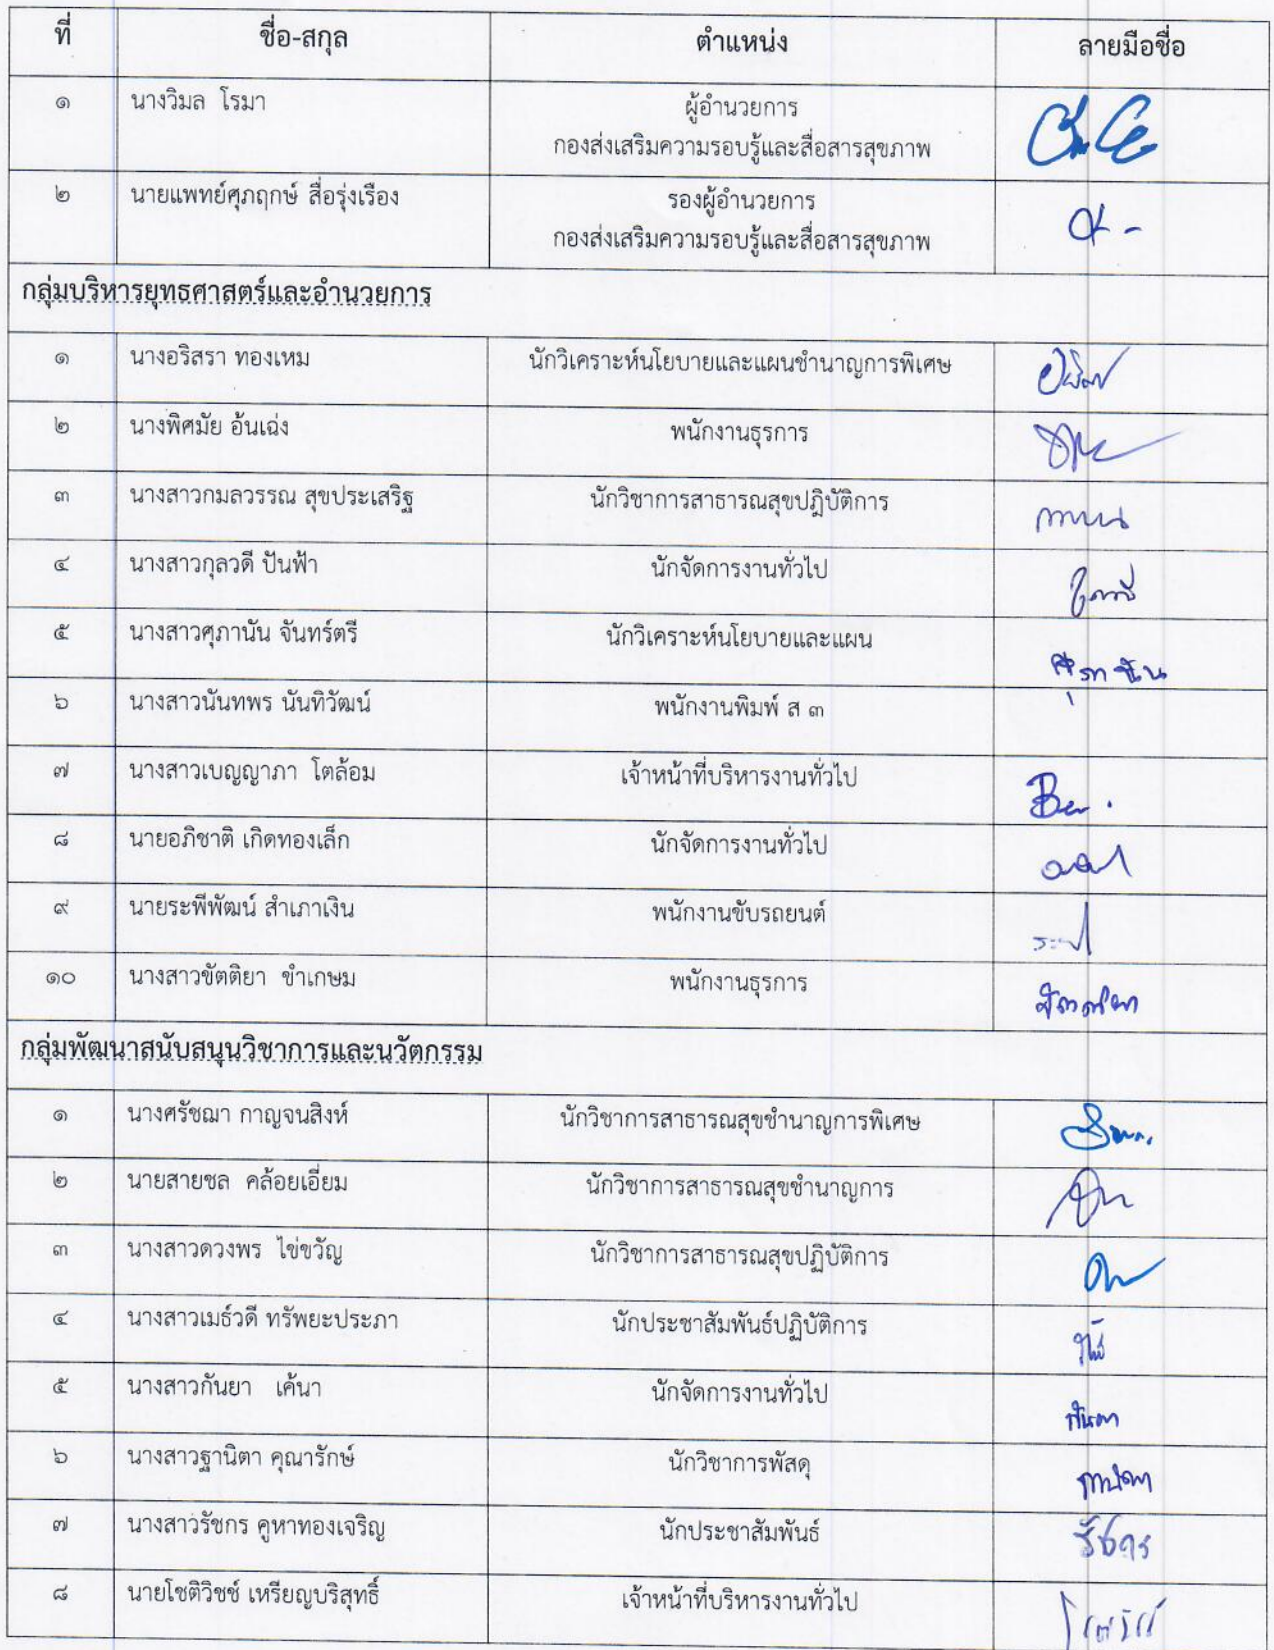 ที่ ชื่อ-สกุล ตำแหน่ง ลายมือชื่อ
๑ นางวิมล โรมา ผู้อำนวยการ
กองส่งเสริมความรอบรู้และสื่อสารสุขภาพ
๒ นายแพทย์ศุภฤกษ์ สื่อรุ่งเรือง รองผู้อำนวยการ
กองส่งเสริมความรอบรู้และสื่อสารสุขภาพ
กลุ่มบริหารยุทธศาสตร์และอำนวยการ
๑ นางอริสรา ทองเหม นักวิเคราะห์นโยบายและแผนชำนาญการพิเศษ
๒ นางพิศมัย อ้นเฉ่ง พนักงานธุรการ
๓ นางสาวกมลวรรณ สุขประเสริฐ นักวิชาการสาธารณสุขปฏิบัติการ
๔ นางสาวกุลวดี ปันฟ้า นักจัดการงานทั่วไป
๕ นางสาวศุภานัน จันทร์ตรี นักวิเคราะห์นโยบายและแผน
๖ นางสาวนันทพร นันทิวัฒน์ พนักงานพิมพ์ ส ๓
๗ นางสาวเบญญาภา โตล้อม เจ้าหน้าที่บริหารงานทั่วไป
๘ นายอภิชาติ เกิดทองเล็ก นักจัดการงานทั่วไป
๙ นายระพีพัฒน์ สำเภาเงิน พนักงานขับรถยนต์
๑๐ นางสาวขัตติยา ขำเกษม พนักงานธุรการ
กลุ่มพัฒนาสนับสนุนวิชาการและนวัตกรรม
๑ นางศรัชฌา กาญจนสิงห์ นักวิชาการสาธารณสุขชำนาญการพิเศษ
๒ นายสายชล คล้อยเอี่ยม นักวิชาการสาธารณสุขชำนาญการ
๓ นางสาวดวงพร ไข่ขวัญ นักวิชาการสาธารณสุขปฏิบัติการ
๔ นางสาวเมธ์วดี ทรัพยะประภา นักประชาสัมพันธ์ปฏิบัติการ
๕ นางสาวกันยา เค้นา นักจัดการงานทั่วไป
๖ นางสาวฐานิตา คุณารักษ์ นักวิชาการพัสดุ
๗ นางสาวรัชกร คูหาทองเจริญ นักประชาสัมพันธ์ รัชกร
๘ นายโชติวิชช์ เหรียญบริสุทธิ์ เจ้าหน้าที่บริหารงานทั่วไป